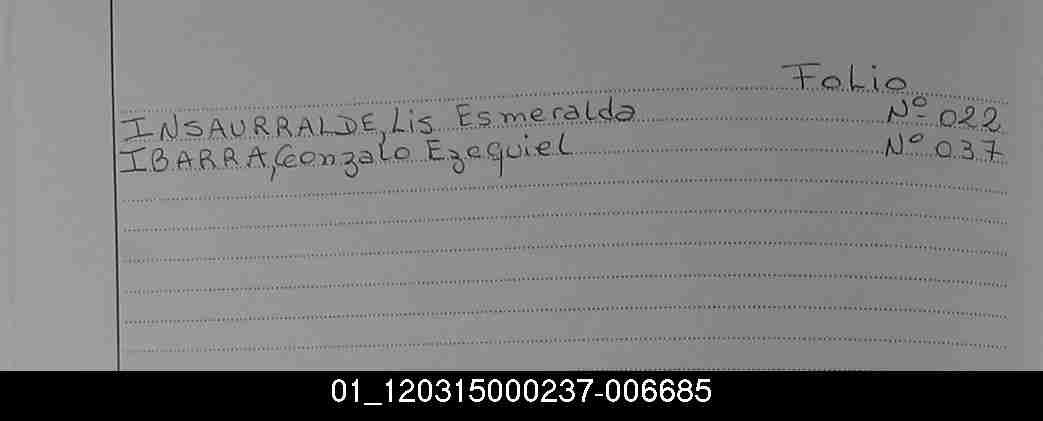 Folio
INSAURRALDE, Lis Esmeralda Nº 022
IBARRA, Gonzalo Ezequiel Nº 037
01_120315000237-006685